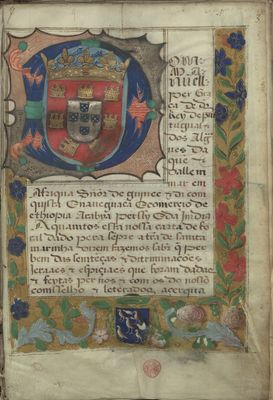 Dom
Ma
nuell
per Gra
ça de ds
Rey de por
tugual z
dos Alg
ues Da
que z
dallem
mar em
Afriqua Sñor de guinee z da com
quista E navegaçã E comercio de
ethiopia Arabya persy E da India
A quamtos esta nossa carta de fo
ral dado pera sempre a tr̃a de santa
marinha virem fazemos sabr q̃ per
bem das semtẽças z detriminações
jeraaes z espiçiaes que foram dadas
z feytas per nos z com os do nosso
comssellho z leterados açerqua